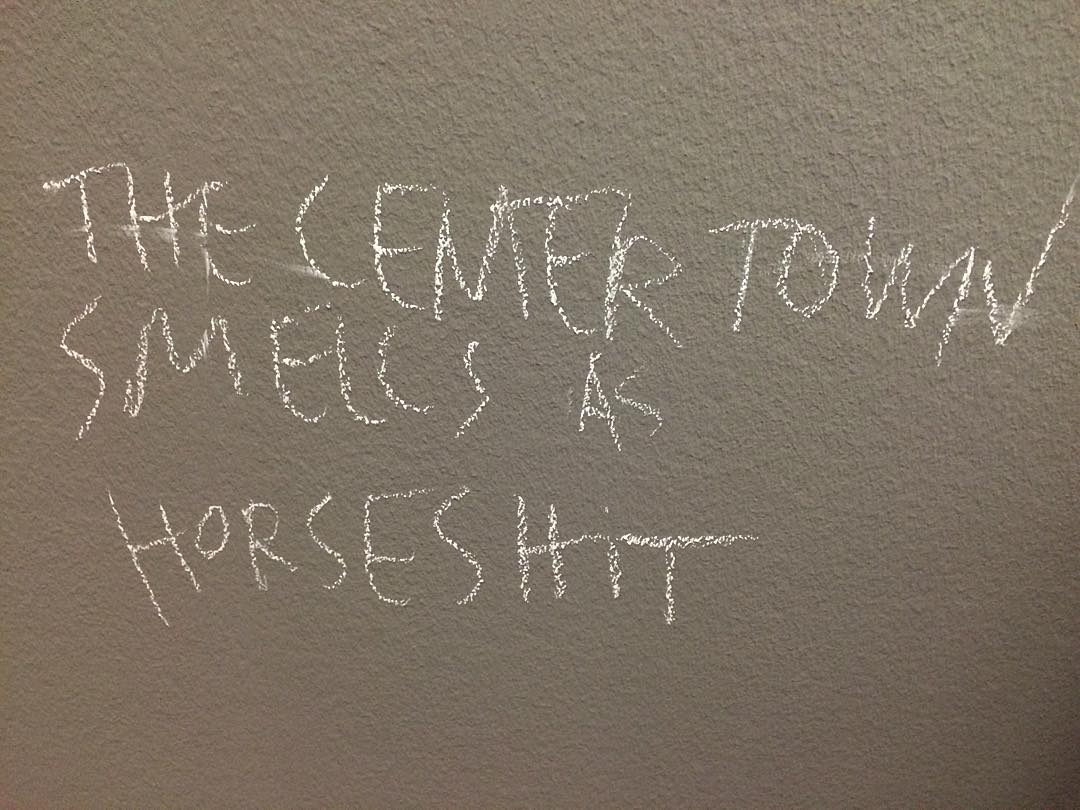 THE CENTER TOWN
SMELLS AS
HORSESHiT